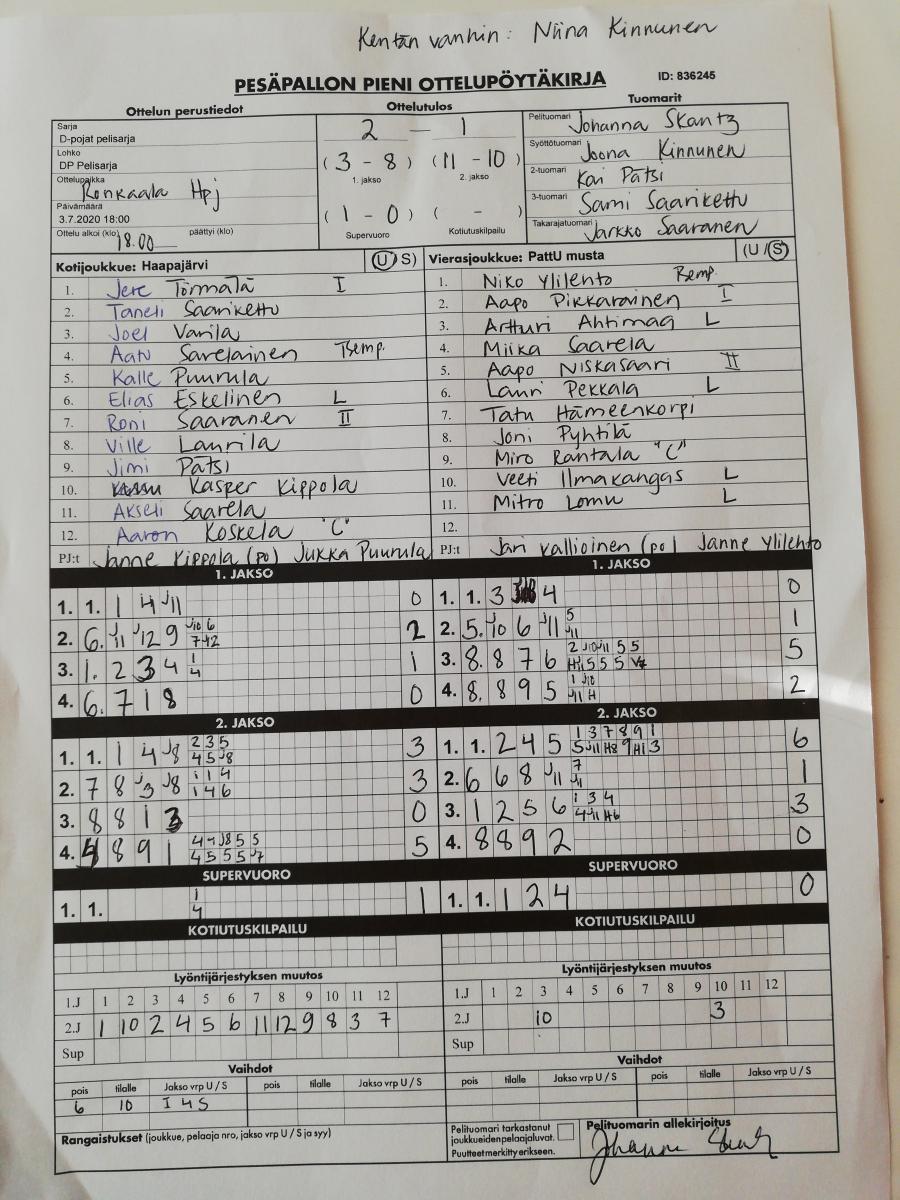 Kentän vanhin: Niina Kinnunen
PESÄPALLON PIENI OTTELUPÖYTÄKIRJA ID: 836245
Ottelun perustiedot Ottelutulos Tuomarit
Sarja
D-pojat pelisarja
Lohko
DP Pelisarja
Ottelupaikka
Ronkaala Hpj
Päivämäärä
3.7.2020 18:00
Ottelu alkoi (klo) 18.00 päättyi (klo)
2 - 1
(3 - 8) (11 - 10)
1. jakso 2. jakso
(1 - 0) ( - )
Supervuoro Kotiutuskilpailu
Pelituomari Johanna Skantz
Syöttötuomari Joona Kinnunen
2-tuomari Kai Pätsi
3-tuomari Sami Saarikettu
Takarajatuomari Jarkko Saaranen
Kotijoukkue: Haapajärvi (U/S)
1. Jere Törmälä I
2. Taneli Saarikettu
3. Joel Varila
4. Aatu Savelainen
5. Kalle Puurula
6. Elias Eskelinen L
7. Roni Saaranen II
8. Ville Laurila
9. Jimi Pätsi
10. Kasper Kippola
11. Akseli Saarela
12. Aaron Koskela "C"
PJ:t Janne Kippola (po) Jukka Puurula
Vierasjoukkue: PattU musta (U/S)
1. Niko Ylilehto
2. Aapo Pikkarainen I
3. Artturi Ahtimaa L
4. Miika Saarela
5. Aapo Niskasaari II
6. Lauri Pekkala L
7. Tatu Hämeenkorpi
8. Joni Pyhtilä
9. Miro Rantala "C"
10. Veeti Ilmakangas L
11. Mitro Lomu L
12.
PJ:t Jari Kallioinen (po) Janne Ylilehto
1. JAKSO
1. 1. 1 4 J11 0
2. 6. J11 J12 9 2
3. 1. 2 3 4 1 4 1
4. 6. 7 1 8 0
1. JAKSO
1. 1. 3 4 0
2. 5. J10 6 J11 5 J11 1
3. 8. 8 7 6 5
4. 8. 8 9 5 2
2. JAKSO
1. 1. 1 4 J8 2 3 5 4 5 J8 3
2. 7 8 J3 J8 1 1 4 1 4 6 3
3. 8 8 1 3 0
4. 8 9 1 5
2. JAKSO
1. 1. 2 4 5 1 3 7 8 9 1 5 J11 H8 9 H1 3 6
2. 6 6 8 J11 7 J11 1
3. 1 2 5 6 1 3 4 4 J11 H6 3
4. 8 8 9 2 0
SUPERVUORO
1. 1. 1 4 1
SUPERVUORO
1. 1. 1 2 4 0
KOTIUTUSKILPAILU
KOTIUTUSKILPAILU
Lyöntijärjestyksen muutos
1.J 1 2 3 4 5 6 7 8 9 10 11 12
2.J 1 10 2 4 5 6 11 12 9 8 3 7
Sup
Lyöntijärjestyksen muutos
1.J 1 2 3 4 5 6 7 8 9 10 11 12
2.J 10 3
Sup
Vaihdot
pois tilalle Jakso vrp U / S pois tilalle Jakso vrp U / S
6 10 I 4 S
Vaihdot
pois tilalle Jakso vrp U / S pois tilalle Jakso vrp U / S
Rangaistukset (joukkue, pelaaja nro, jakso vrp U / S ja syy)
Pelituomari tarkastanut
joukkueiden pelaajaluvat.
Puutteet merkitty erikseen.
Pelituomarin allekirjoitus